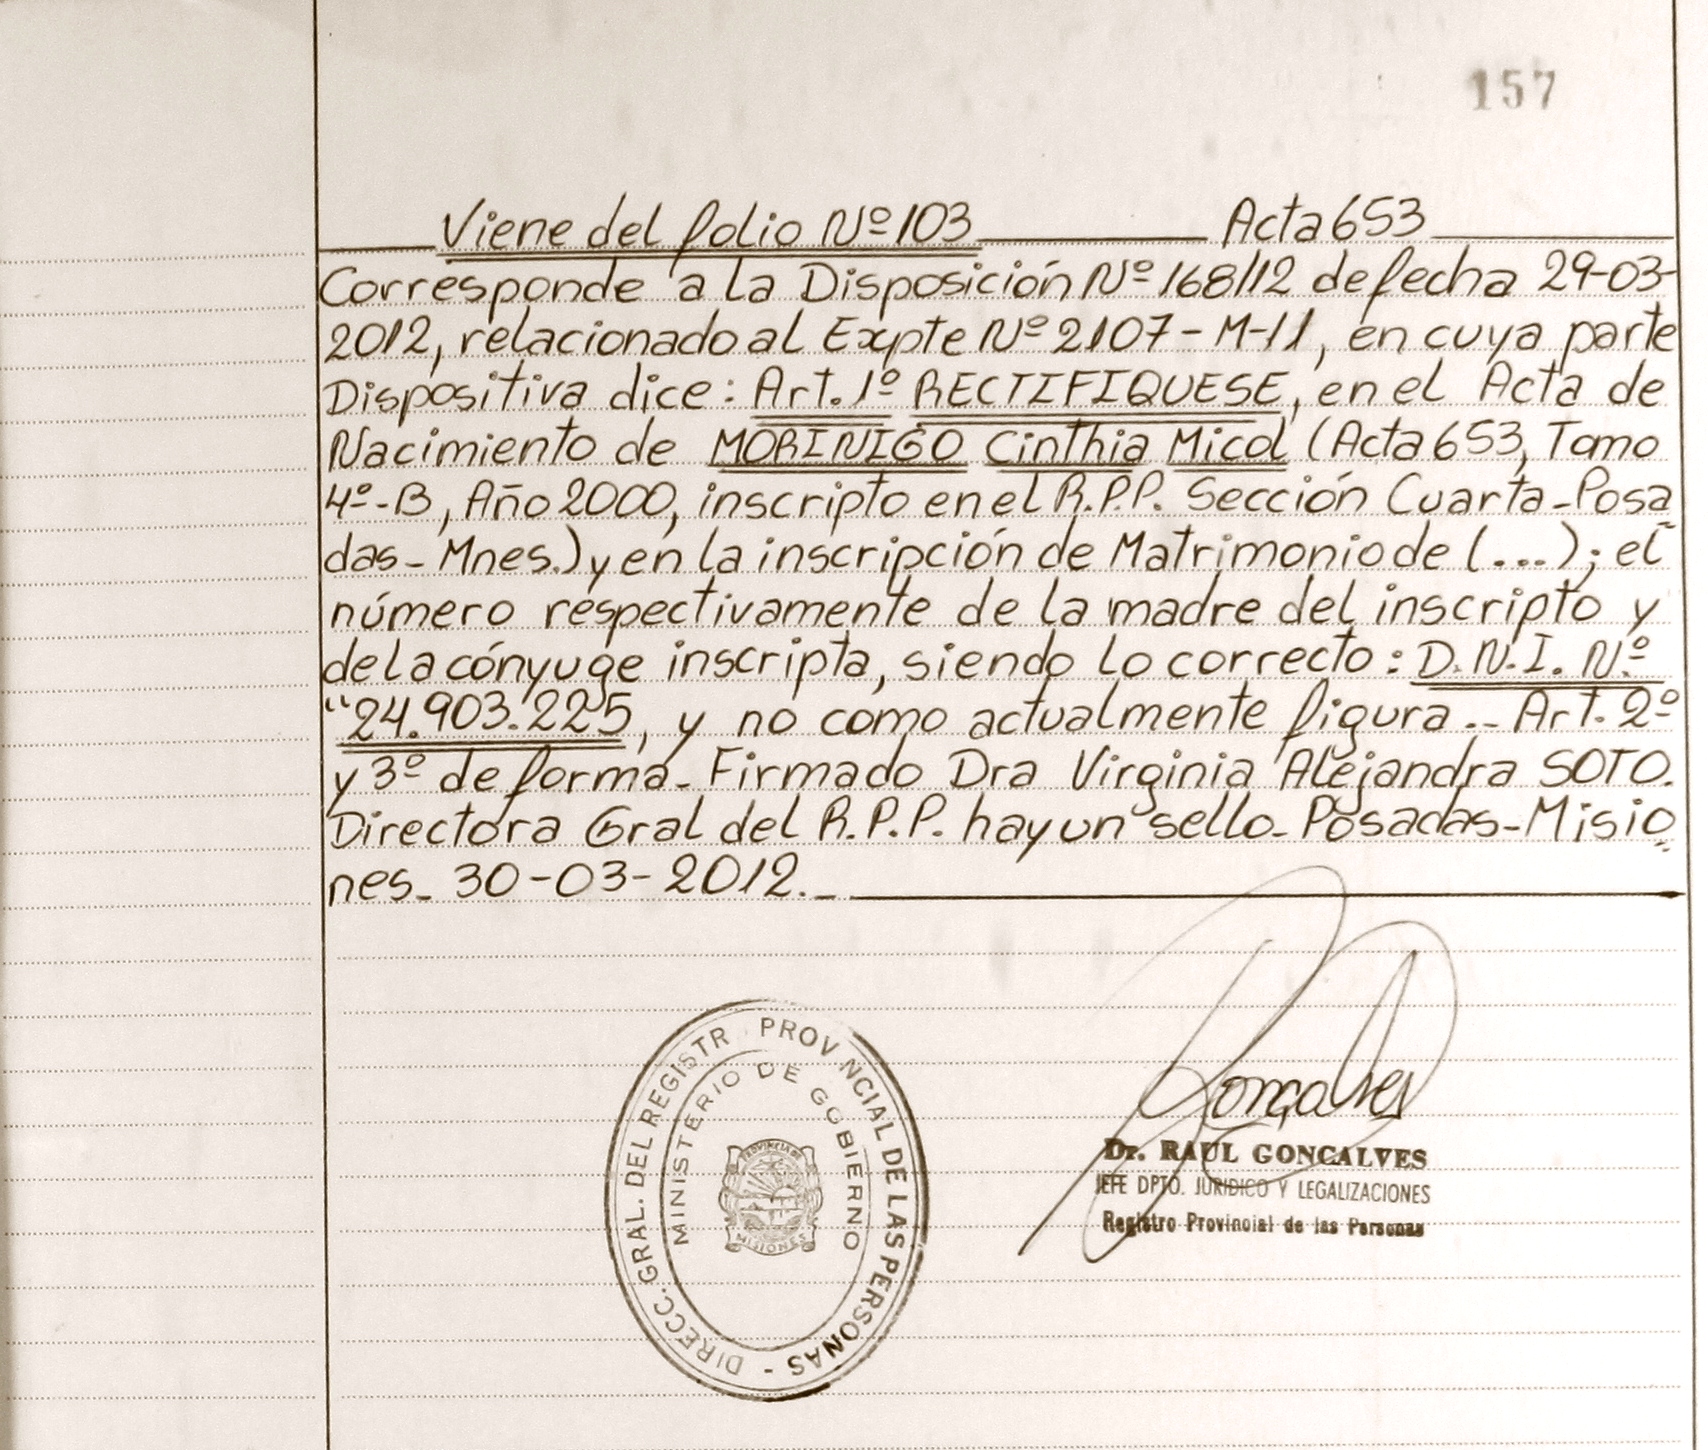 157
Viene del folio Nº 103 Acta 653
Corresponde a la Disposición Nº 168/12 de fecha 29-03-
2012, relacionado al Expte Nº 2107-M-11, en cuya parte
Dispositiva dice: Art. 1º RECTIFIQUESE, en el Acta de
Nacimiento de MORINIGO Cinthia Micol (Acta 653, Tomo
4º-B, Año 2000, inscripto en el R.P.P. Sección Cuarta-Posa
das-Mnes.) y en la inscripción de Matrimonio de (...); el
número respectivamente de la madre del inscripto y
de la cónyuge inscripta, siendo lo correcto: D.N.I. Nº
"24.903.225, y no como actualmente figura.- Art. 2º
y 3º de forma- Firmado Dra Virginia Alejandra SOTO.
Directora Gral del R.P.P. hay un sello- Posadas-Misio
nes- 30-03-2012.-
DIRECC. GRAL. DEL REGISTR PROVINCIAL DE LAS PERSONAS -
MINISTERIO DE GOBIERNO
PROVINCIA DE
MISIONES
Goncalves
Dr. RAUL GONCALVES
JEFE DPTO. JURIDICO Y LEGALIZACIONES
Registro Provincial de las Personas